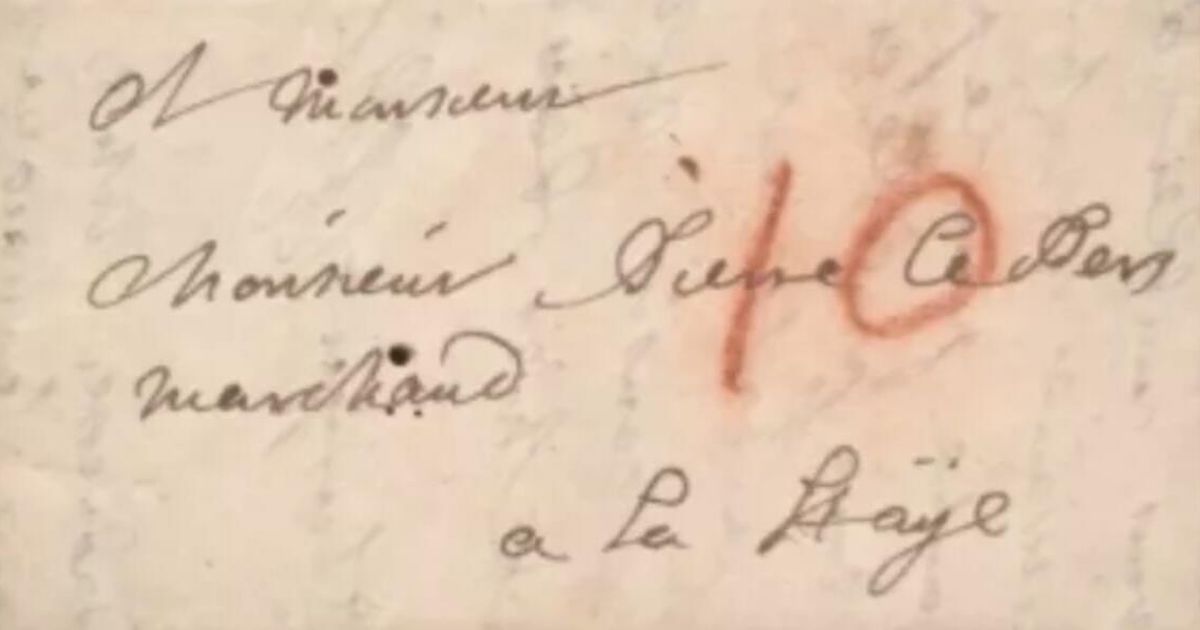 A Monsieur
Monsieur Pierre Ce
marchand
a La Haÿe
10